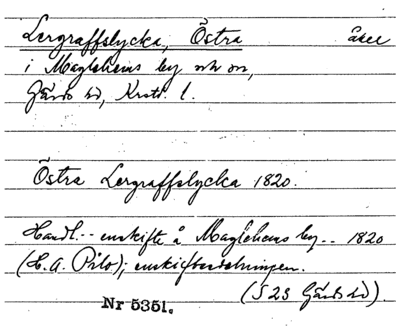 Lergraffslycka, Östra åker
i Maglehems by och sn,
Gärds hd, Krist. l.
Östra Lergraffslycka 1820.
Handl. -- enskifte å Maglehems by -- 1820
(H. A. Pihlo); enskiftesdelningen.
(S 23 Gärds hd).
Nr 5351.